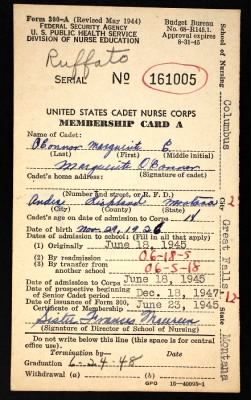 Form 300-A (Revised May 1944)
FEDERAL SECURITY AGENCY
U. S. PUBLIC HEALTH SERVICE
DIVISION OF NURSE EDUCATION
Budget Bureau
No. 68-R145.1.
Approval expires
8-31-45
Ruffato
SERIAL No 161005
UNITED STATES CADET NURSE CORPS
MEMBERSHIP CARD A
Name of Cadet:
O'Connor Marguerite E.
(Last) (First) (Middle initial)
Marguerite O'Connor
Cadet's home address: (Signature of cadet)
(Number and street, or R. F. D.)
Richland Montana
(City) (County) (State)
Cadet's age on date of admission to Corps 18
Date of birth Nov. 29, 1926
Dates of admission to school: (Fill in all that apply)
(1) Originally June 18, 1945
(2) By readmission 06-18-5
(3) By transfer from another school 06-5-18
Date of admission to Corps June 18, 1945
Date of prospective beginning of Senior Cadet period Dec. 18, 1947
Date of issuance of Form 300, Certificate of Membership June 23, 1945
Sister Frances Maureen
(Signature of Director of School of Nursing)
Do not write below this line (this space is for central office use).
Termination by— Date
Graduation 6-24-48
Withdrawal (a) (b)
GPO 16-40095-1
School of Nursing
Columbus
City
Great Falls
State
Montana